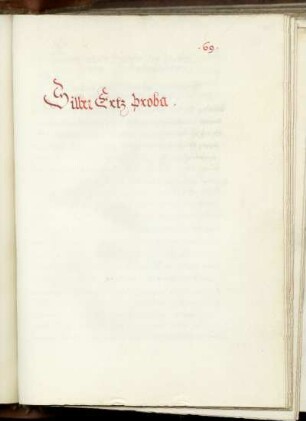 ·69·
Silber Ertz proba.